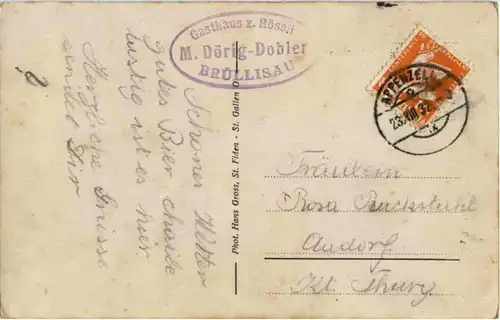 Gasthaus z. Rössli
M. Dörig-Dobler
BRÜLLISAU
APPENZELL
23.VIII.32
Schönes Wetter
gutes Bier
lustig ist es hier.
Herzliche Grüsse
sendet Dir
Phot. Hans Gross, St. Fiden - St. Gallen O
Fräulein
Rosa
Aadorf
Kt. Thurg.